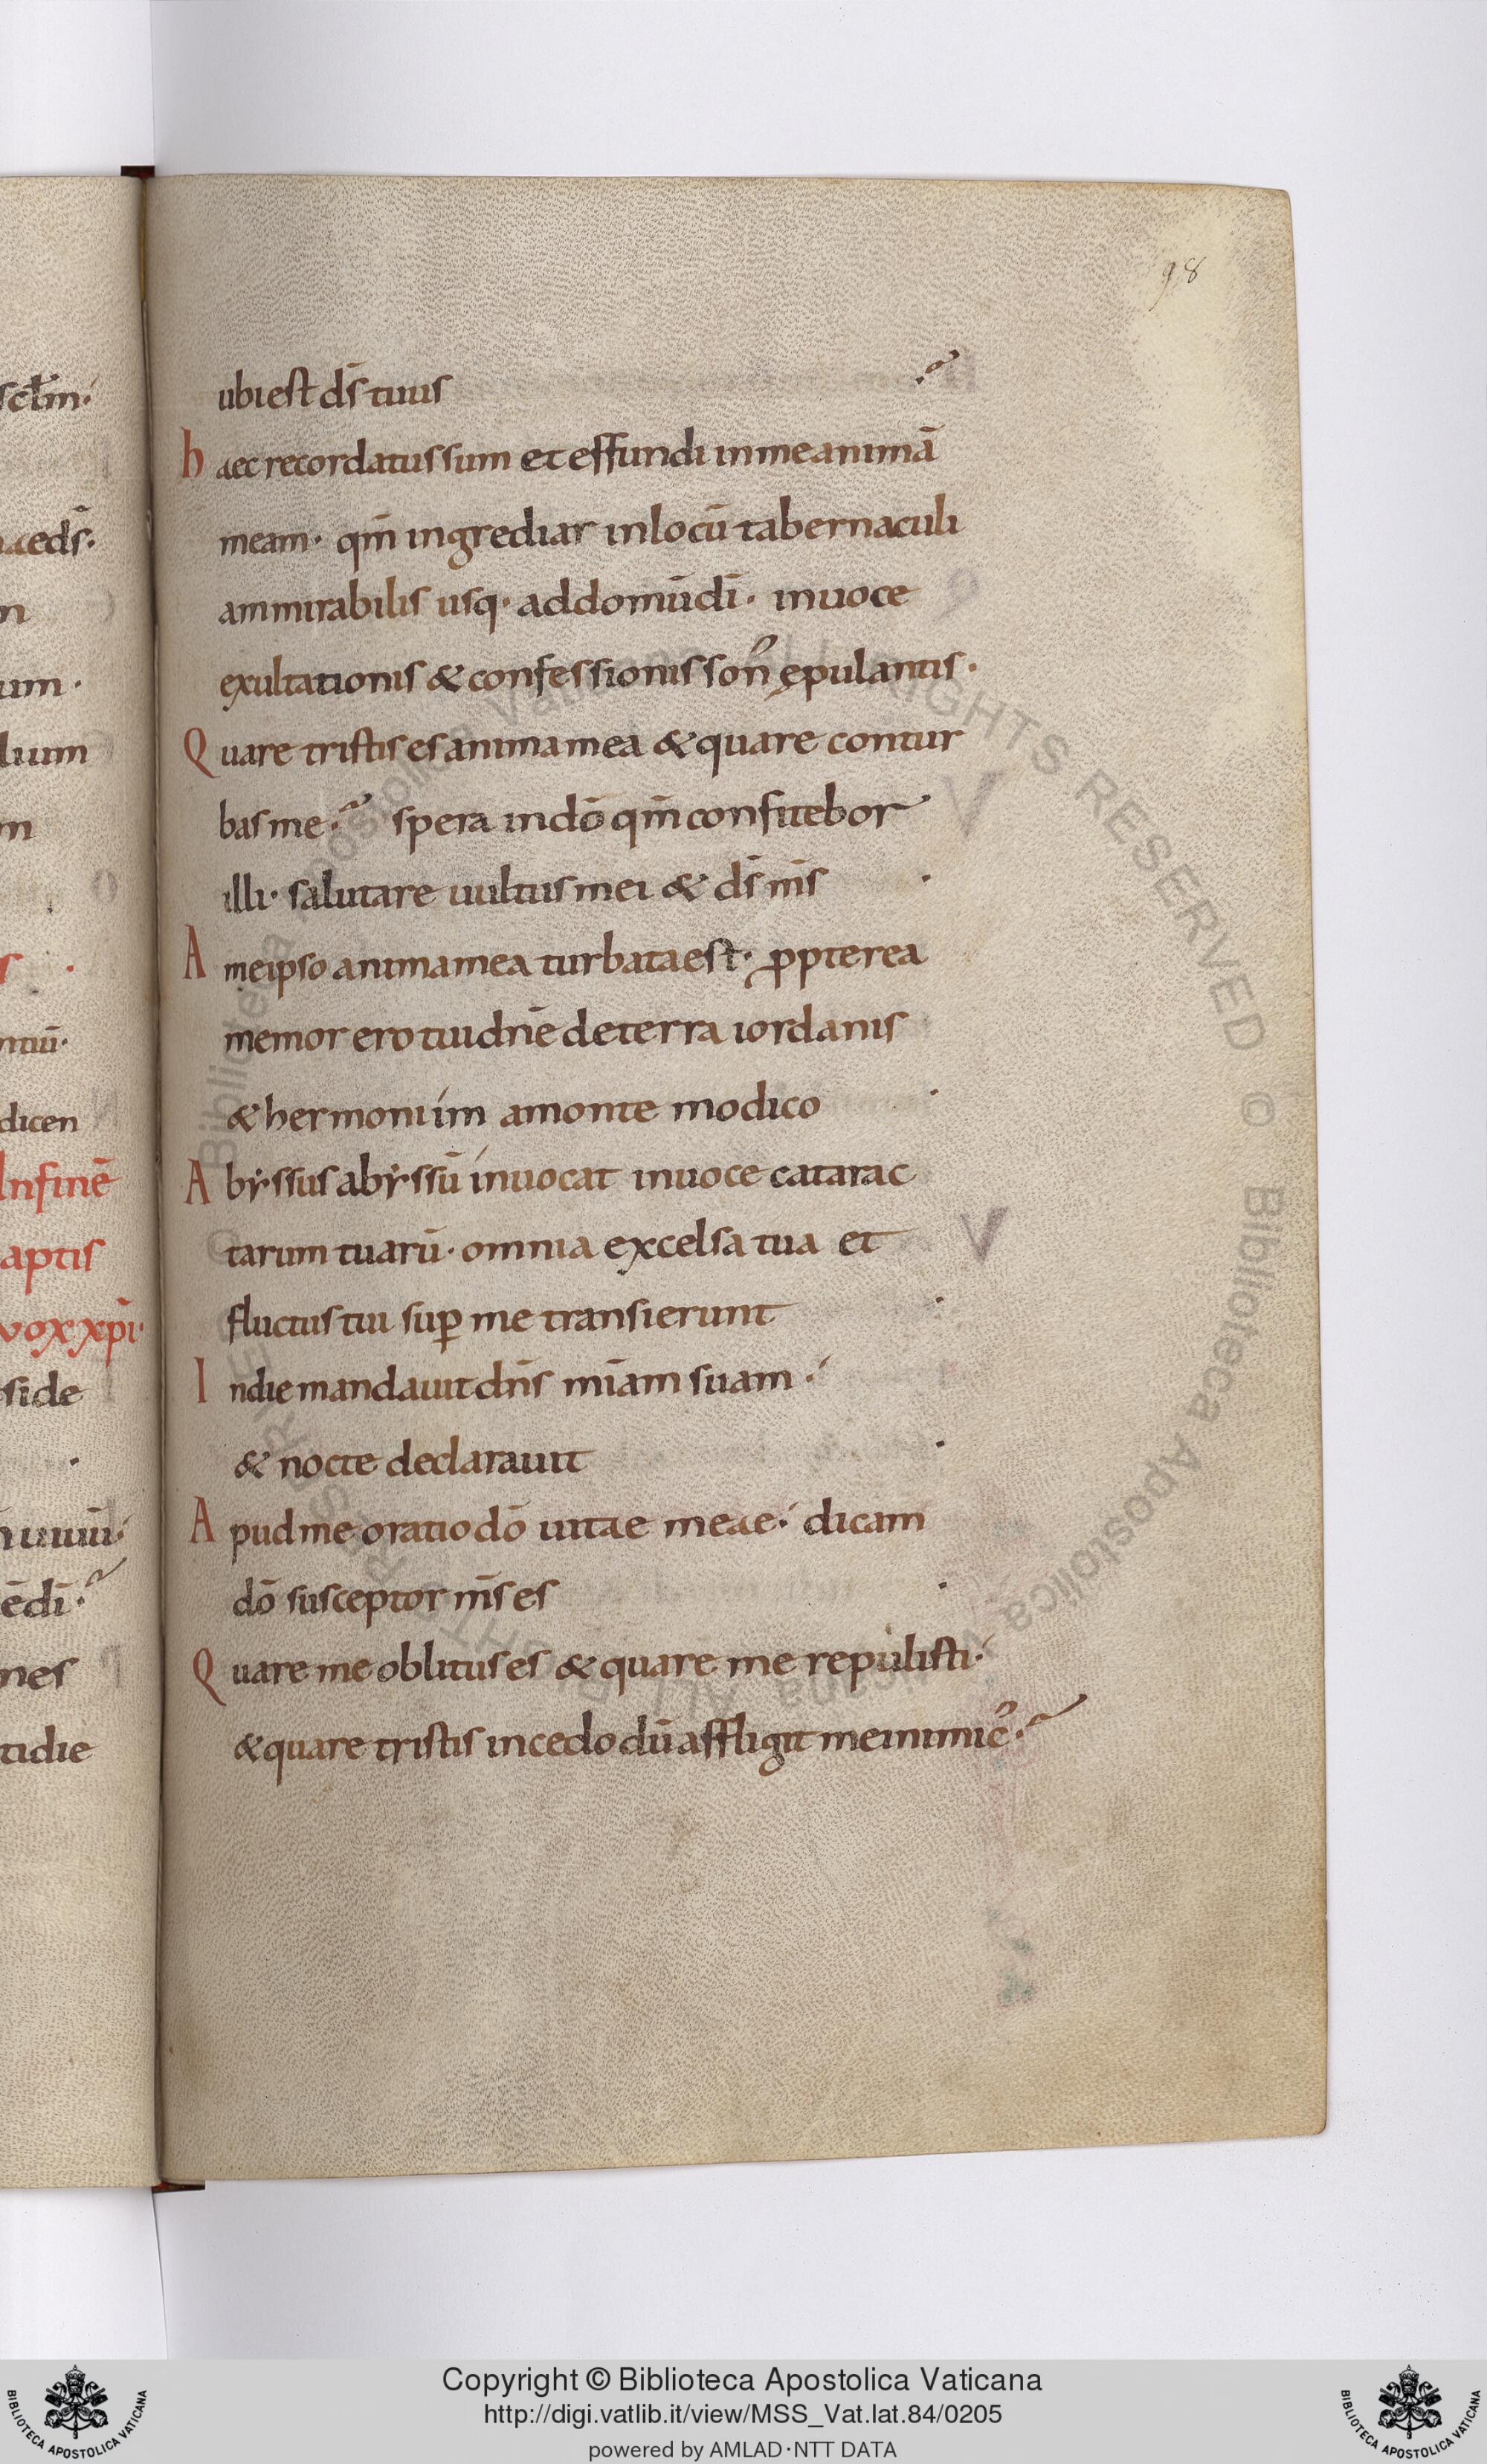 98
sctm̄·
ubi est dS̄ tuus
haec recordatus sum et effundi in me animā
meam· qm̄ ingrediar in locū tabernaculi
ammirabilis usq· ad domū dī· in uoce
exultationis & confessionis son᾽ ępulantis·
Quare tristis es anima mea & quare contur
bas me· spera in dō qm̄ confitebor
illi· salutare uultus mei & dS̄ mS̄
A meipso anima mea turbata est· ꝓpterea
memor ero tui dnē de terra iordanis
& hermoniim a monte modico
Abẏssus abẏssū inuocat in uoce catarac
tarum tuarū· omnia excelsa tua et
fluctus tui suꝑ me transierunt
In die mandauit dnS̄ miam̄ suam·
& nocte declarauit
Apud me oratio dō uitae meae· dicam
dō susceptor mS̄ es
Quare me oblitus es & quare me repulisti·
& quare tristis incedo dū affligit me inimic᾽·
aceds̄·
um·
lium
dicen
Infinē
aptis
vox xp̄i·
side
nes
tidie
© Biblioteca Apostolica Vaticana ALL RIGHTS RESERVED
Copyright © Biblioteca Apostolica Vaticana
http://digi.vatlib.it/view/MSS_Vat.lat.84/0205
powered by AMLAD·NTT DATA
BIBLIOTECA APOSTOLICA VATICANA
BIBLIOTECA APOSTOLICA VATICANA